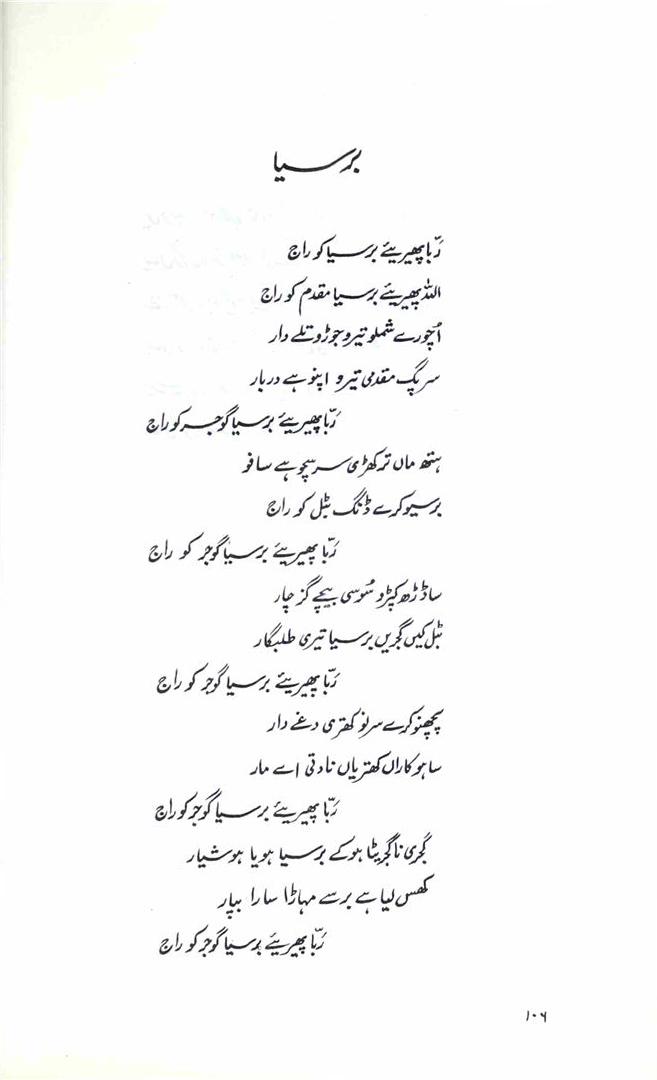 برسیا
رَبّا پھیریئے برسیا کو راج
اللہ پھیریئے برسیا مقدم کو راج
اُچو رے شملو تیرو جوڑو تلے دار
سر پگ مقدمی تیرو اپنو ہے دربار
رَبّا پھیریئے برسیا گوجر کو راج
ہتھ ماں ترکھڑی سر سچو ہے سافو
برسیو کرے ڈنگ بٹل کو راج
رَبّا پھیریئے برسیا گوجر کو راج
ساڈڑھ کپڑو سُوسی بیچے گز چار
بٹل کیں گجریں برسیا تیری طلبگار
رَبّا پھیریئے برسیا گوجر کو راج
پچھنو کرے سرنو کھتری دغے دار
ساہوکاراں کھتریاں نادتی اے مار
رَبّا پھیریئے برسیا گوجر کو راج
گجری نا گجریٹا ہو کے برسیا ہویا ہوشیار
کھس لیا ہے برسے مہاڑا سارا بپار
رَبّا پھیریئے برسیا گوجر کو راج
۱۰۶